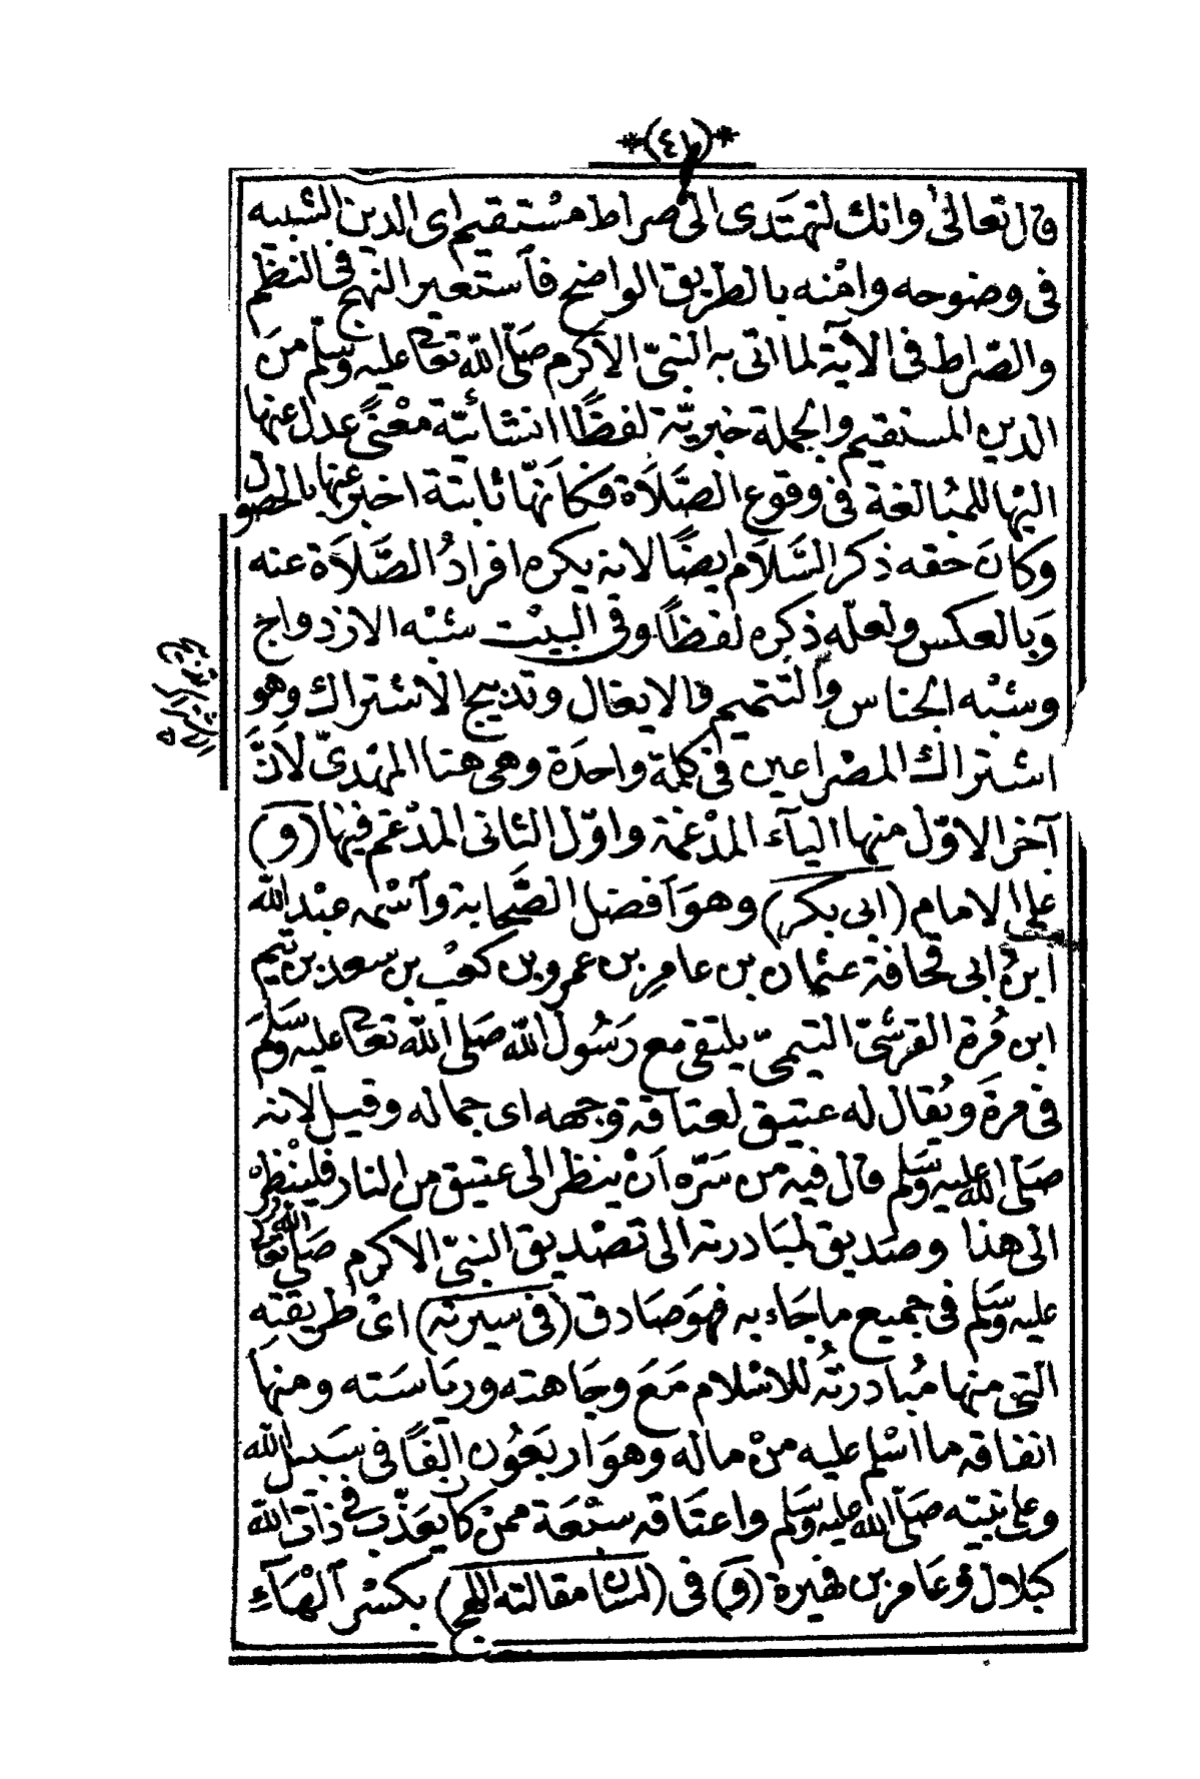 *(٤)*
قال تعالىٰ وانك لتهتدى الىٰ صراط مسْتقيم اى الدين الشبيه
فى وضوحه وامْنه بالطريق الواضح فٱستعير النهج فى النظم
والصّراط فى الآية لما اتى به النبىّ الاكرم صَلّى اللّٰه تعالى عليه وسلّم منَ
الدين المستقيم والجملة خبريّة لفظًا انشائيّة معْنىً عدل عنها
اليْها للمبالغة فى وقوع الصَّلاَة فكاَنّها ثابتة اخبر عنها بالحصول
وكانَ حقه ذكر السَّلاَم ايضًا لانه يكره افرادُ الصَّلاَة عنه
وَبالعكس ولعلّه ذكره لفظًا وفى البيْت شبْه الازدواج
وشبْه الجناس والتتميم فالايغال وتدبيج الاشتراك وهو
اشتراك المصْراعين فى كلمة واحدَة وهى هنا المهْدىّ لاَنَّ
آخر الاوّل منها اليآء المدْغمة واوّل الثانى المدْغم فيها (و)
على الامام (ابى بكر) وهوَ اَفضل الصَّحابة وٱسْمه عبْد اللّٰه
ابنُ ابى قحافة عثمان بن عامرِ بن عمرو بن كعْب بن سعد بن تيم
ابن مُرة القرشىّ التيمىّ يلتقى مع رَسُول اللّٰه صَلى اللّٰه تعالى عليه وسَلمَ
فى مرةَ ويُقال له عتيق لعتاقة وَجهه اى جماله وقيل لانه
صَلّى اللّٰه عليه وسَلم قال فيه من سَرّه اَنْ ينظر الى عتيق من النار فليَنْظرْ
الى هذا وصديق لمبَادرته الى تصْديق النبىّ الاكرم صَلّى اللّٰه تعالى
عليه وسَلم فى جميع ما جَاء به فهوَ صَادق (فى سيرته) اىْ طريقته
التى منها مُبادرتُه للاسْلام مَعَ وجَاهته ورياسَته ومنها
انفاقه ما اسْلم عليه منْ ماله وهوَ اربَعُون اَلفًا فى سَبيل اللّٰه
وعلى نبيّه صَلّى اللّٰه عليه وسَلم واعتَاقه سبْعَة ممنْ كان يعَذّب فى ذات اللّٰه
كبلال وعَامر بن فهيرة (و) فى (لسان مقالته اللهج) بكسْر الهَآءِ